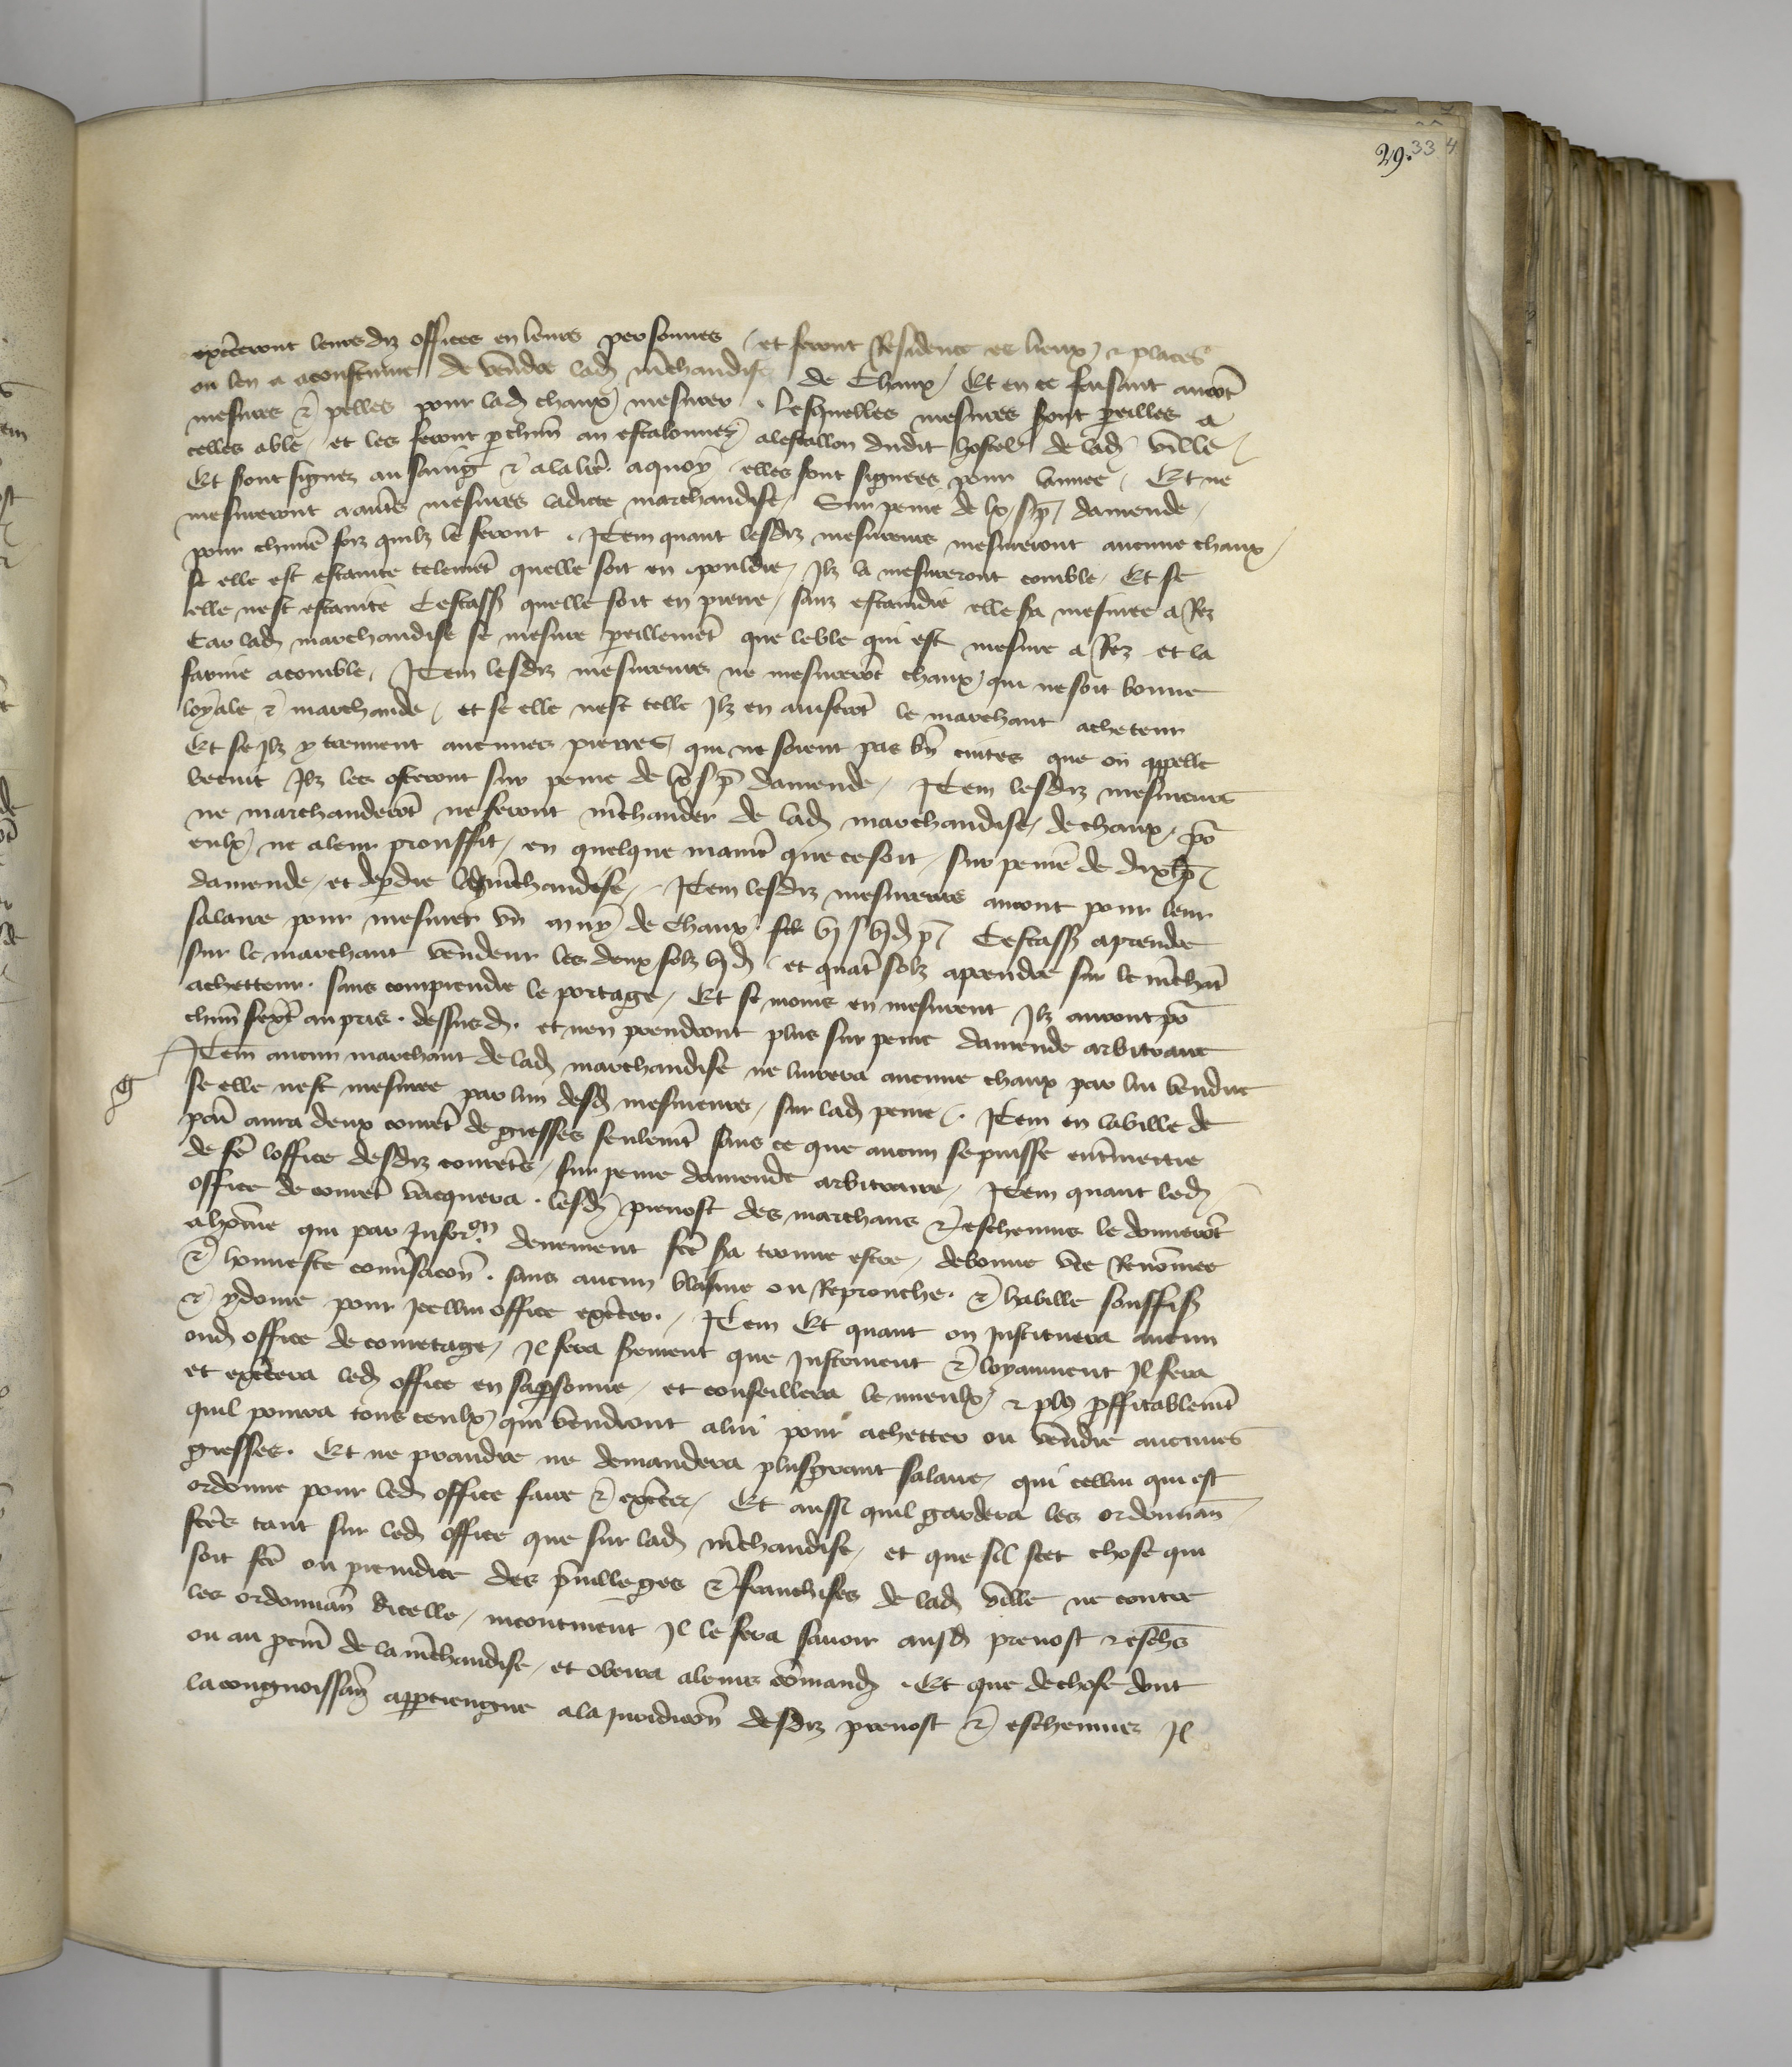 29. 33 4
exẽceront leursdiz offices en leurs personnes / et feront Residence es lieux & places
ou len a acoustume de vendre lad m̃chandise de Chaux / Et en ce faisant aurõt
mesures & pelles pour lad chaux mesurer . Lesquelles mesures sont pareilles a
celles a ble / et les feront p chũn an estalonner a lestallon dudit hostel de lad ville /
Et sont signez au saing & a la lrẽ a quoy elles sont signees pour lannee / Et ne
mesureront a autẽs mesures ladicte marchandise / Sur peine de lx s p damende /
pour chũne foiz quilz le feront . Item quant lesdiz mesureurs mesureront aucune chaux /
se elle est estainte telemẽt quelle soit en pouldre / Ilz la mesureront comble / Et se
elle nest estainte Cestass quelle soit en pierre / sanz estaindre elle sa mesuree a Rez
Car lad marchandise se mesure pareillemẽt que le ble qui est mesure a Rez et la
farine a comble / Item lesdiz mesureurs ne mesurerõt chaux qui ne soit bonne
loyale & marchande / et se elle nest telle Ilz en auiserõt le marchant acheteur
Et se Ilz y treuuent aucunes pierres qui ne soient pas bñ cuites que on appelle
becuit Ilz les osteront sur peine de lx s p damende / Item lesdiz mesureurs
ne marchanderõt ne feront m̃chander de lad marchandise / de chaux / põ
eulx ne a leur prouffit / en quelque maniẽ que ce soit / sur peine de dix l p
damende / et de pdre lad m̃chandise / Item lesdiz mesureurs auront pour leur
salaire pour mesurer vn muy de Chaux vj s vj d p Cestass a prendre
sur le marchant vendeur les deux solz vj d / et quatẽ solz a prendre sur le m̃chãt
achetteur . sans comprendre le portage / Et se moins en mesurent Ilz auront põ
chũn sextẽ au pris . dessusd . et nen prendront plus sur peine damende arbitraire
Item aucun marchant de lad marchandise ne liurera aucune chaux par lui vendue
se elle nest mesuree par lun desd mesureurs / sur lad peine . Item en la ville de
par̃ aura deux courẽt de gresses seulemẽt sans ce que aucun se puisse entmettre
de fẽ loffice desdiz couretẽs / sur peine damende arbitraire / Item quant led
office de couretẽ vacquera . lesd preuost des marchans & escheuins le donnerõt
a hõme qui par Inforon deuement fcẽ sa trouue estre / de bonne vie Renõmee
& honneste conũsacõn . sans aucun blasme ou Reprouche . & habille souffiss
& ydoine pour jcellui office exẽcer . / Item Et quant on Instituera aucun
oud office de couretage / Il fera serement que Justement & loyaument Il fera
et exẽcera led office en sa psonne / et conseillera le mieulx & plus pffitablemẽt
quil pourra tous ceulx qui vendront a lui pour achetter ou vendre aucunes
gresses . Et ne prandra ne demandera plus grant salaire / qui cellui qui est
ordonne pour led office faire & exẽcer / Et aussi quil gardera les ordonnañ
fcẽs tant sur led office que sur lad m̃chandise / et que sil scet chose qui
soit fcẽ ou preiudice des p̃uilleges & franchises de lad ville ne contre
les ordonnañ dicelle / incontinent Il le fera sauoir ausd preuost & eschẽ
ou au pcur̃ de la m̃chandise / et obeira a leurs cõmand . Et que de chose dont
la congnoissañ appartiengne a la Juridicõn desdiz preuost & escheuins Il